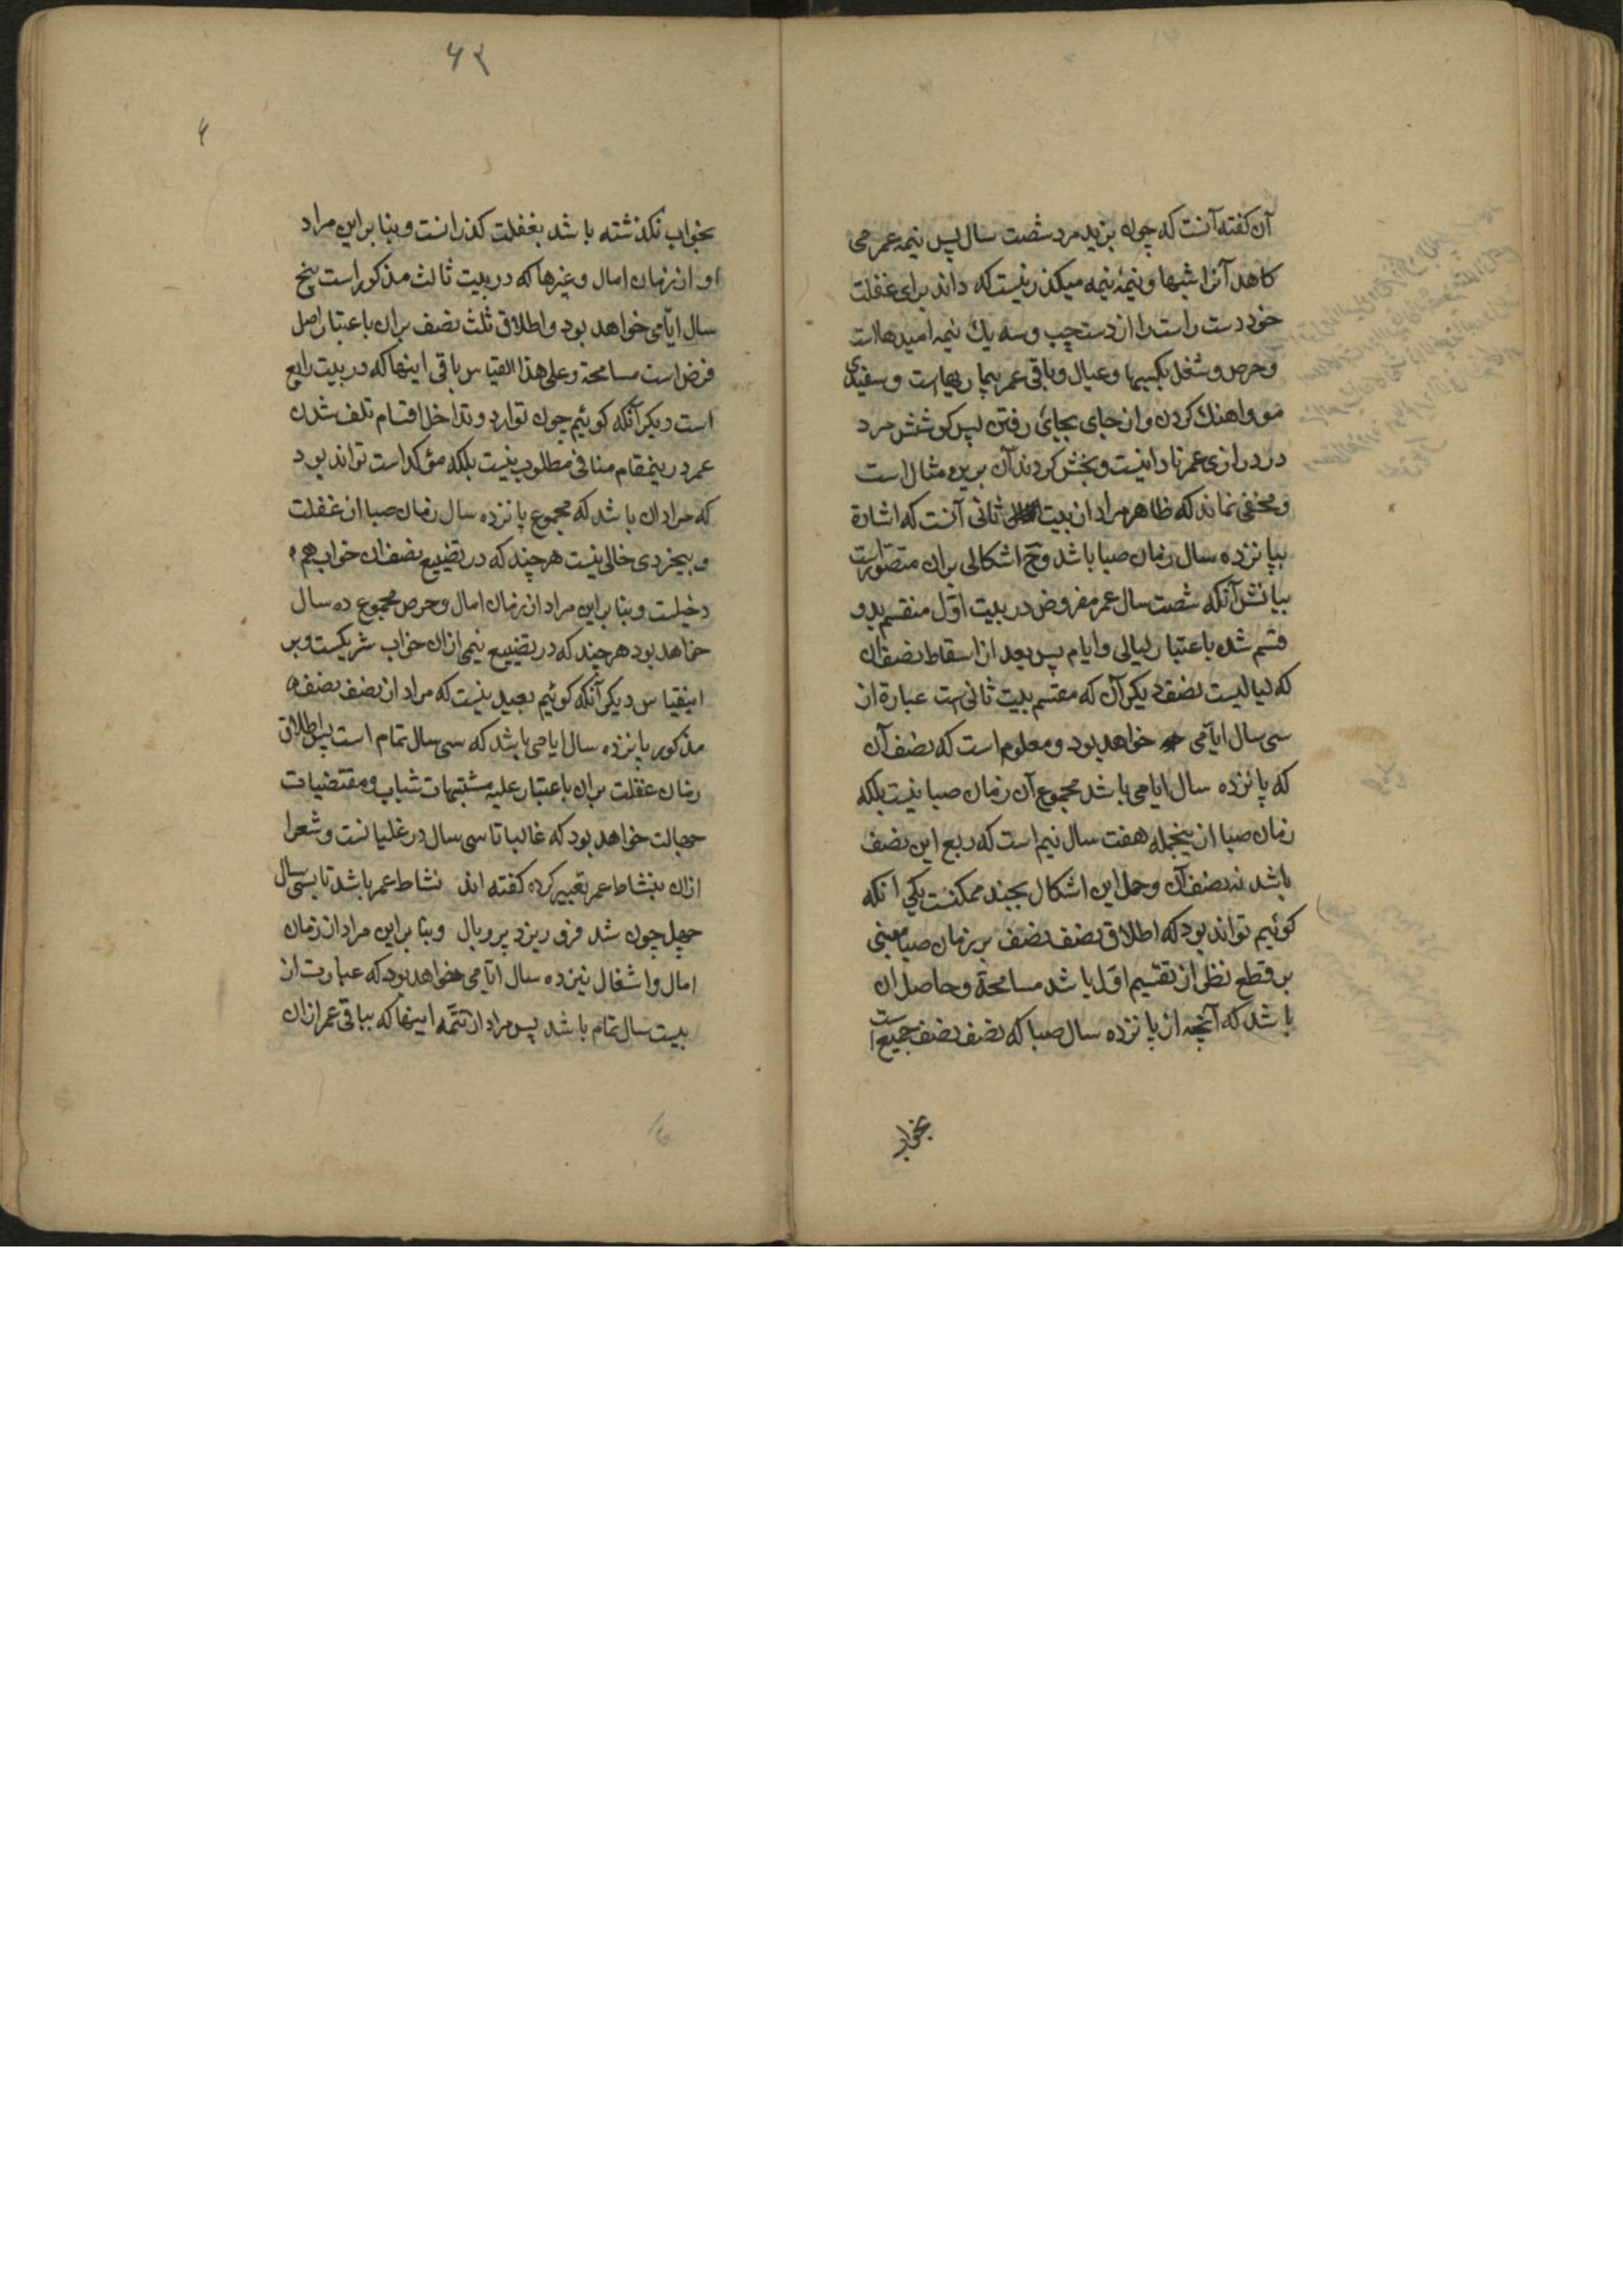 آن کفته آنست که چون بزید مرد شصت سال پس نیمه عمر می
کاهد آنرا شبها و نیمهٔ نیمه میکذرد نیست که داند برای غفلت
خود دست راست را از دست چپ و سه یك نیمه امیدهاست
و حرص و شغل بکسبها و عیال و باقی عمر بیماریهاست و سفیدی
مو و اهنك کردن و از جای بجائی رفتن پس کوشش مرد
در درازی عمر نادانیست و بخش کردند آن برین مثال است
و مخفی نماند که ظاهر مراد از بیت ثانی آنست که اشارة
بپانزده سال زمان صبا باشد وح اشکالی بران متصورست
بیانش آنکه شصت سال عمر مفروض در بیت اوّل منقسم بدو
قسم شد باعتبار لیالی و ایام پس بعد از اسقاط نصف ان
که لیالیست نصف دیکر آن که مقسم بیت ثانی است عبارة از
سی سال ایّامی خواهد بود و معلوم است که نصف آن
که پانزده سال ایامی باشد مجموع آن زمان صبا نیست بلکه
زمان صبا از ینجمله هفت سال نیم است که ربع این نصف
باشد نه نصف آن و حل این اشکال بچند ممکنست یکی انکه
کوئیم تواند بود که اطلاق نصف نصف بر زمان صبا مبنی
بر قطع نظر از تقسیم اوّل باشد مسامحة و حاصل ان
باشد که آنچه از پانزده سال صبا که نصف نصف جمیع است
بخواب
۶۲
۶
بخواب نکذشته باشد بغفلت کذرانست و بنا براین مراد
او از زمان امال و غیرها که در بیت ثالث مذکور است پنج
سال ایّامی خواهد بود و اطلاق ثلث نصف بران باعتبار اصل
فرض است مسامحة و علی هذا القیاس باقی اینها که در بیت رابع
است دیکر آنکه کوئیم چون توارد و تداخل اقسام تلف شدن
عمر درینمقام منافی مطلوب نیست بلکه مؤکد است تواند بود
که مراد ان باشد که مجموع پانزده سال زمان صبا از غفلت
و بیخردی خالی نیست هرچند که در تضییع نصف ان خواب هم
دخیلست و بنا براین مراد از زمان امال و حرص مجموع ده سال
خواهد بود هرچند که در تضییع نیمی ازان خواب شریکست و بر
اینقیاس دیکر آنکه کوئیم بعید نیست که مراد از نصف نصف
مذکور پانزده سال ایامی باشد که سی سال تمام است پس اطلاق
زمان غفلت بران باعتبار علیه مشتهیات شباب و مقتضیات
جهالت خواهد بود که غالبا تا سی سال در غلیانست و شعرا
ازان بنشاط عمر تعبیر کرده کفته اند نشاط عمر باشد تا بسی سال
چهل چون شد فرو ریزد پر و بال و بنا براین مراد از زمان
امال و اشغال نیز ده سال ایّامی خواهد بود که عبارت از
بیست سال تمام باشد پس مراد از تتمّه اینها که بباقی عمر ازان